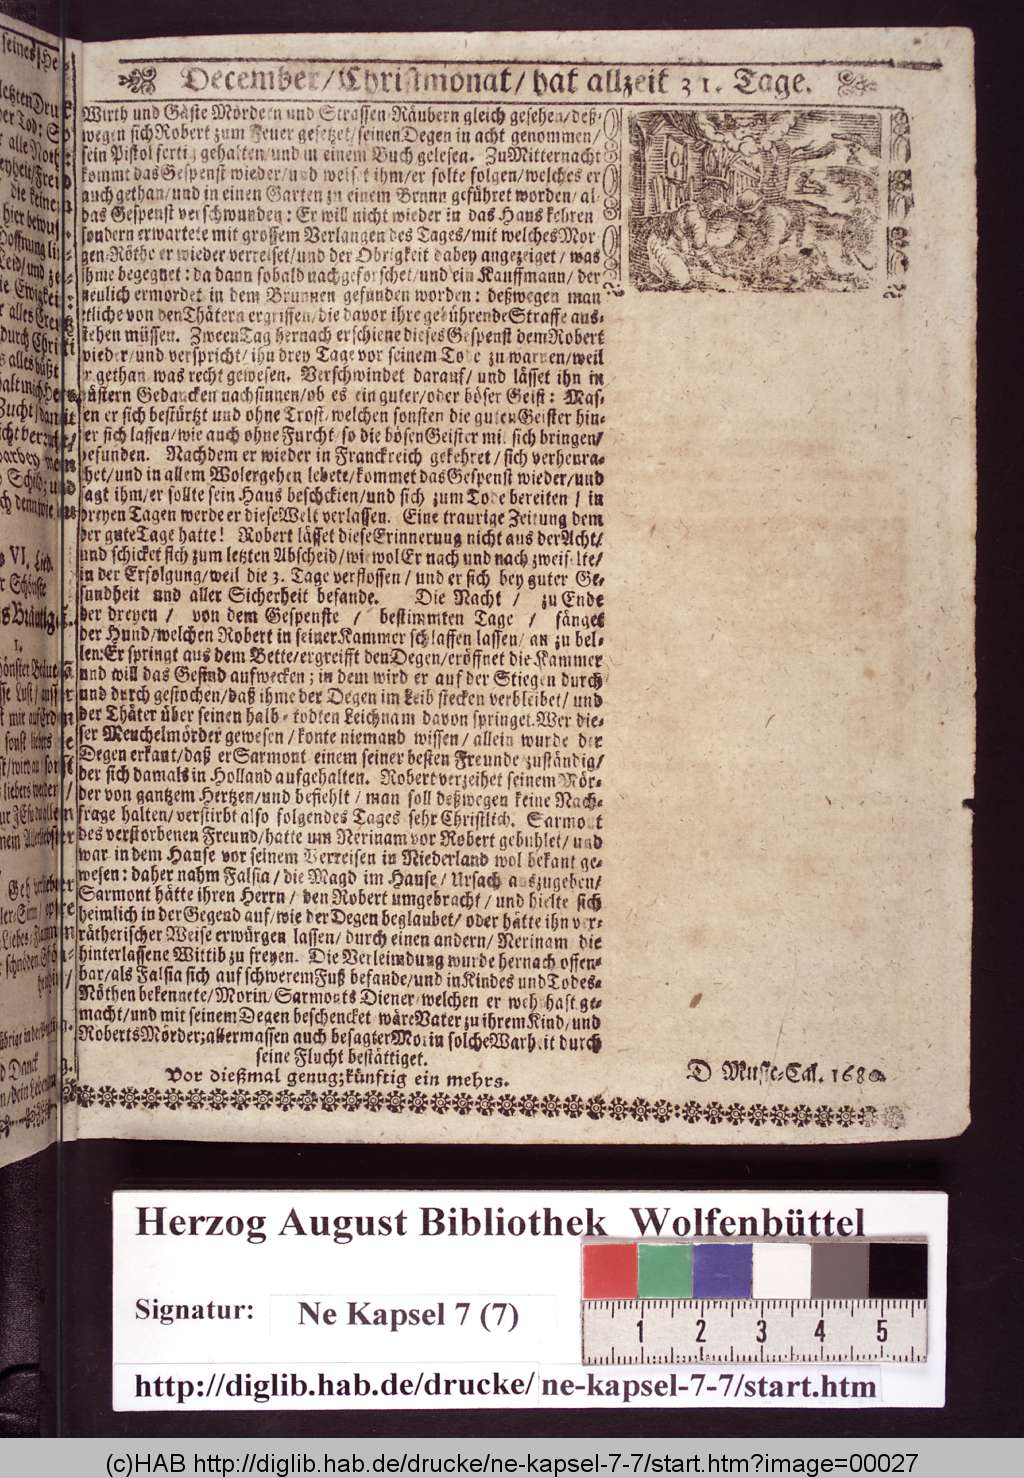 December/Christmonat/hat allzeit 31. Tage.
Wirth und Gäste Mördern und Strassen-Räubern gleich gesehen/deß-
wegen sich Robert zum Feuer gesetzet/seinen Degen in acht genommen/
sein Pistol fertig gehalten/und in einem Buch gelesen. Zu Mitternacht
kommt das Gespenst wieder/und weiset ihm/er solte folgen/welches er
auch gethan/und in einen Garten zu einem Brunn geführet worden/al-
das Gespenst verschwunden: Er will nicht wieder in das Haus kehren
sondern erwartete mit grossem Verlangen des Tages/mit welches Mor-
gen-Röthe er wieder verreiset/und der Obrigkeit dabey angezeiget/was
ihme begegnet: da dann sobald nachgeforschet/und ein Kauffmann/der
neulich ermordet in dem Brunnen gefunden worden: deßwegen man
etliche von den Thätern ergriffen/die davor ihre gebührende Straffe aus-
stehen müssen. Zween Tag hernach erschiene dieses Gespenst dem Robert
wieder/und verspricht/ihn drey Tage vor seinem Tode zu warnen/weil
er gethan was recht gewesen. Verschwindet darauf/und lässet ihn in
düstern Gedancken nachsinnen/ob es ein guter/oder böser Geist: Mas-
sen er sich bestürtzt und ohne Trost/welchen sonsten die guten Geister hin-
ter sich lassen/wie auch ohne Furcht/so die bösen Geister mit sich bringen/
befunden. Nachdem er wieder in Franckreich gekehret/sich verheura-
thet/und in allem Wolergehen lebete/kommet das Gespenst wieder/und
sagt ihm/er sollte sein Haus beschicken/und sich zum Tode bereiten/in
dreyen Tagen werde er diese Welt verlassen. Eine traurige Zeitung dem
der gute Tage hatte! Robert lässet diese Erinnerung nicht aus der Acht/
und schicket sich zum letzten Abscheid/wiewol Er nach und nach zweifelte/
in der Erfolgung/weil die 3. Tage verflossen/und er sich bey guter Ge-
sundheit und aller Sicherheit befande. Die Nacht/ zu Ende
der dreyen/ von dem Gespenste/ bestimmten Tage/ fänget
der Hund/welchen Robert in seiner Kammer schlaffen lassen/an zu bel-
len: Er springt aus dem Bette/ergreifft den Degen/eröffnet die Kammer
und will das Gesind aufwecken; in dem wird er auf der Stiegen durch
und durch gestochen/daß ihme der Degen im Leib stecken verbleibet/und
der Thäter über seinen halb-todten Leichnam davon springet. Wer die-
ser Meuchelmörder gewesen/konte niemand wissen/allein wurde der
Degen erkant/daß er Sarmont einem seiner besten Freunde zuständig/
der sich damals in Holland aufgehalten. Robert verzeihet seinem Mör-
der von gantzem Hertzen/und befiehlt/man soll deßwegen keine Nach-
frage halten/verstirbt also folgendes Tages sehr Christlich. Sarmont
des verstorbenen Freund/hatte um Nerinam vor Robert gebuhlet/und
war in dem Hause vor seinem Verreisen in Niederland wol bekant ge-
wesen: daher nahm Falsia/die Magd im Hause/Ursach auszugeben/
Sarmont hätte ihren Herrn/den Robert umgebracht/und hielte sich
heimlich in der Gegend auf/wie der Degen beglaubet/oder hätte ihn ver-
rätherischer Weise erwürgen lassen/durch einen andern/Nerinam die
hinterlassene Wittib zu freyen. Die Verleimdung wurde hernach offen-
bar/als Falsia sich auf schwerem Fuß befande/und in Kindes und Todes-
Nöthen bekennete/Morin/Sarmonts Diener/welchen er wehrhaft ge-
macht/und mit seinem Degen beschencket wäre Vater zu ihrem Kind/und
Roberts Mörder; allermassen auch besagter Morin solche Warheit durch
seine Flucht bestättiget.
Vor dießmal genug; künftig ein mehrs.
Herzog August Bibliothek Wolfenbüttel
Signatur: Ne Kapsel 7 (7)
1 2 3 4 5
http://diglib.hab.de/drucke/ne-kapsel-7-7/start.htm
(c)HAB http://diglib.hab.de/drucke/ne-kapsel-7-7/start.htm?image=00027